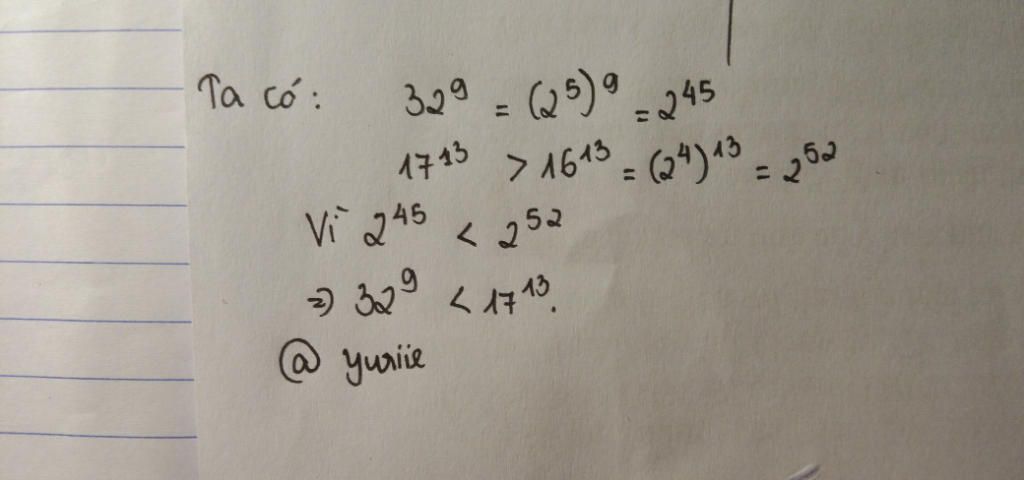 Ta có: 32⁹ = (2⁵)⁹ = 2⁴⁵
17¹³ > 16¹³ = (2⁴)¹³ = 2⁵²
Vì 2⁴⁵ < 2⁵²
=) 32⁹ < 17¹³.
@ yuriie